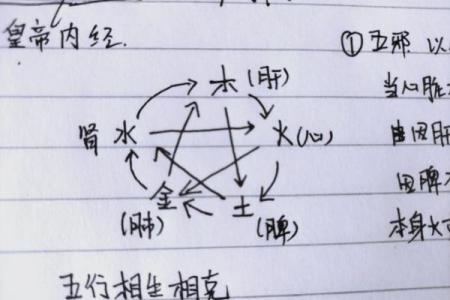 皇帝内经.
① 五邪 以
木 (肝)
当心脏
肾 水
火 (心)
由因肝
金
土
因脾
(肺)
(脾)
本身火
五行相生相克